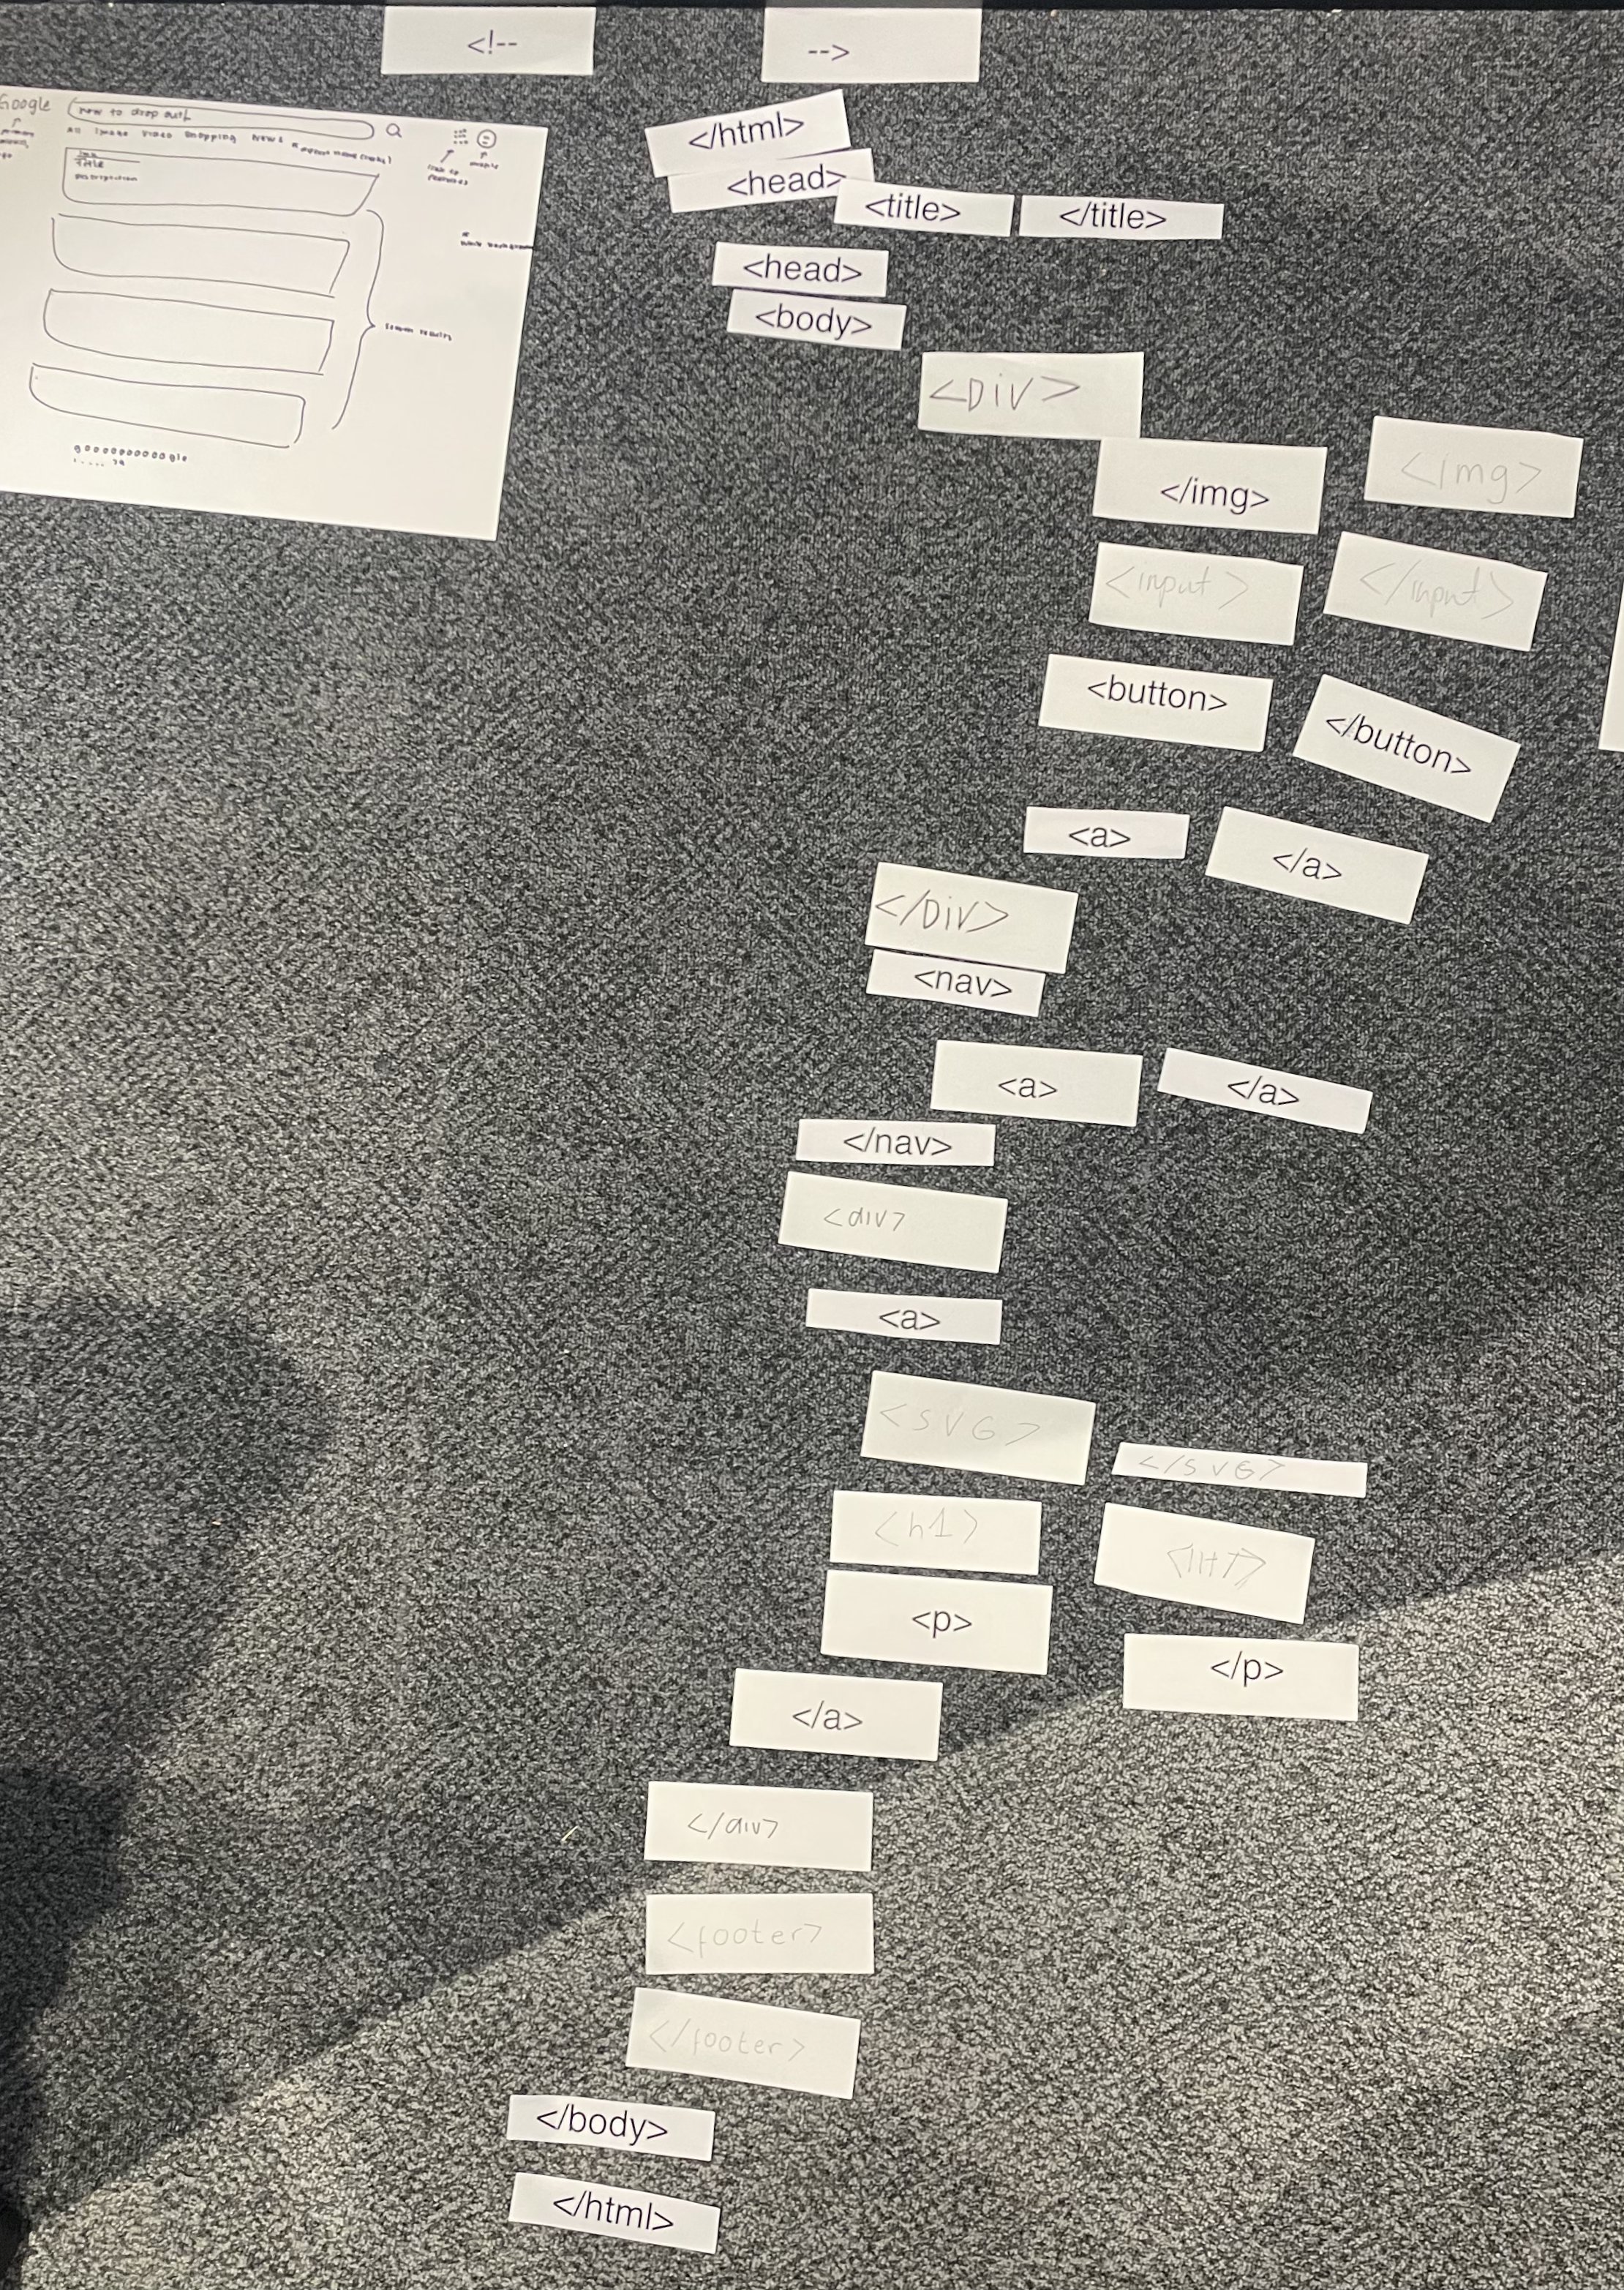 <!-- -->
Google
how to drop out
All Image Video Shopping News
Title
Description
search results
gooooooooogle
</html>
<head>
<title> </title>
<head>
<body>
<DiV>
</img> <img>
<input> </input>
<button> </button>
<a> </a>
</DiV>
<nav>
<a> </a>
</nav>
<div>
<a>
<SVG> </SVG>
<h1>
<p> </p>
</a>
</div>
<footer>
</footer>
</body>
</html>